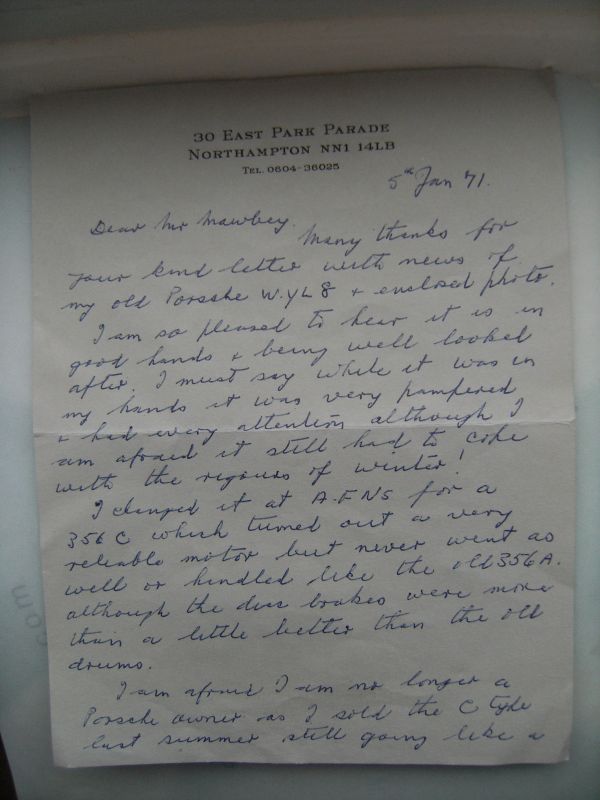 30 EAST PARK PARADE
NORTHAMPTON NN1 14LB
TEL. 0604-36025
5th Jan 71.
Dear Mr Mawbey.
Many thanks for
your kind letter with news of
my old Porsche W.YL8 + enclosed photo.
I am so pleased to hear it is in
good hands + being well looked
after. I must say while it was in
my hands it was very pampered
+ had every attention although I
am afraid it still had to cope
with the rigours of winter!
I changed it at A.F.N's for a
356 C which turned out a very
reliable motor but never went as
well or handled like the old 356A.
although the disc brakes were more
than a little better than the old
drums.
I am afraid I am no longer a
Porsche owner as I sold the C type
last summer still going like a
com